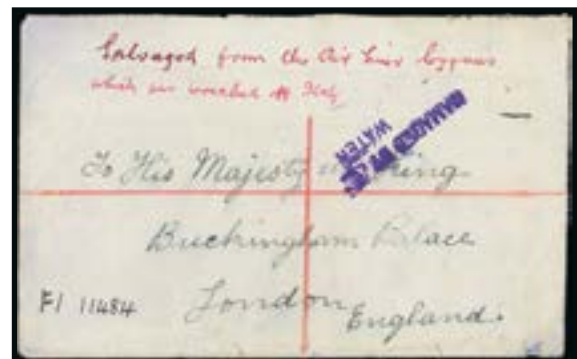 Salvaged from the Air Liner Cygnus
which was wrecked off Italy
DAMAGED BY SEA
WATER
To His Majesty the King
Buckingham Palace
London
England.
F/ 11484